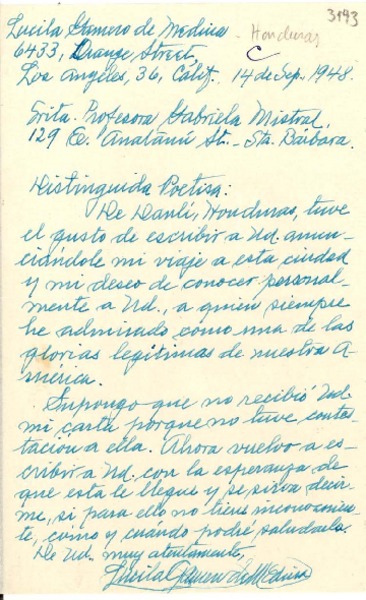 3193
Honduras
Lucila Gamero de Medina
6433, Orange Street,
C
Los Angeles, 36, Calif. 14 de Sep. 1948.
Srita. Profesora Gabriela Mistral,
129 E. Anapamú St. - Sta. Bárbara.
Distinguida Poetisa:
De Danlí, Honduras, tuve
el gusto de escribir a Ud. anun-
ciándole mi viaje a esta ciudad
y mi deseo de conocer personal-
mente a Ud., a quien siempre
he admirado como una de las
glorias legítimas de nuestra A-
mérica.
Supongo que no recibió Ud.
mi carta porque no tuve contes-
tación a ella. Ahora vuelvo a es-
cribir a Ud. con la esperanza de
que esta le llegue y se sirva decir-
me, si para ello no tiene inconvenien-
te, cómo y cuándo podré saludarla.
De Ud. muy atentamente,
Lucila Gamero de Medina